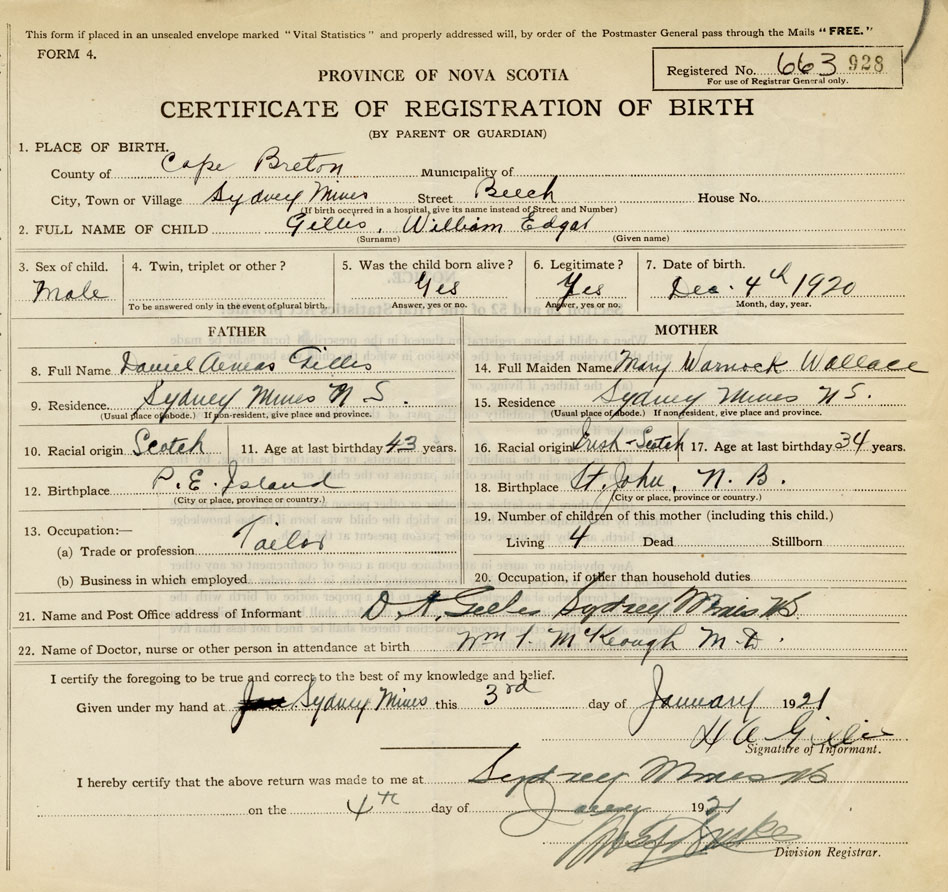 This form if placed in an unsealed envelope marked "Vital Statistics" and properly addressed will, by order of the Postmaster General pass through the Mails "FREE."
FORM 4.
Registered No. 663 928
For use of Registrar General only.
PROVINCE OF NOVA SCOTIA
CERTIFICATE OF REGISTRATION OF BIRTH
(BY PARENT OR GUARDIAN)
1. PLACE OF BIRTH.
County of Cape Breton Municipality of
City, Town or Village Sydney Mines Street Beech House No.
(If birth occurred in a hospital, give its name instead of Street and Number)
2. FULL NAME OF CHILD Gillis, William Edgar
(Surname) (Given name)
3. Sex of child. 4. Twin, triplet or other? 5. Was the child born alive? 6. Legitimate? 7. Date of birth.
Male Yes Yes Dec. 4th 1920
To be answered only in the event of plural birth. Answer, yes or no. Answer, yes or no. Month, day, year.
FATHER
8. Full Name Daniel Aeneas Gillis
9. Residence. Sydney Mines N S.
(Usual place of abode.) If non-resident, give place and province.
10. Racial origin Scotch 11. Age at last birthday 43 years.
12. Birthplace P. E. Island
(City or place, province or country.)
13. Occupation:—
(a) Trade or profession Tailor
(b) Business in which employed
MOTHER
14. Full Maiden Name Mary Warnock Wallace
15. Residence Sydney Mines N S.
(Usual place of abode.) If non-resident, give place and province.
16. Racial origin Irish-Scotch 17. Age at last birthday 34 years.
18. Birthplace St. John, N. B.
(City or place, province or country.)
19. Number of children of this mother (including this child.)
Living 4 Dead Stillborn
20. Occupation, if other than household duties
21. Name and Post Office address of Informant D. A. Gillis Sydney Mines NS
22. Name of Doctor, nurse or other person in attendance at birth Wm. McKeough M.D.
I certify the foregoing to be true and correct to the best of my knowledge and belief.
Given under my hand at Sydney Mines this 3rd day of January 1921
D A Gillis
Signature of Informant.
I hereby certify that the above return was made to me at Sydney Mines NS
on the 4th day of 1921
Division Registrar.